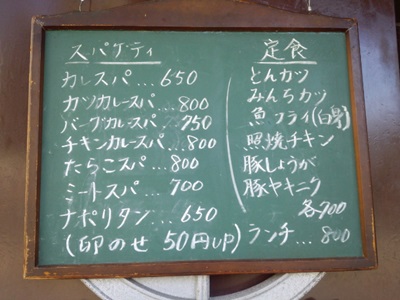 スパゲティ
カレスパ...650
カツカレースパ...800
バーグカレースパ...750
チキンカレースパ...800
たらこスパ...800
ミートスパ...700
ナポリタン...650
(卵のせ 50円UP)
定食
とんカツ
みんちカツ
魚フライ(白身)
照焼チキン
豚しょうが
豚ヤキニク
各700
ランチ...800